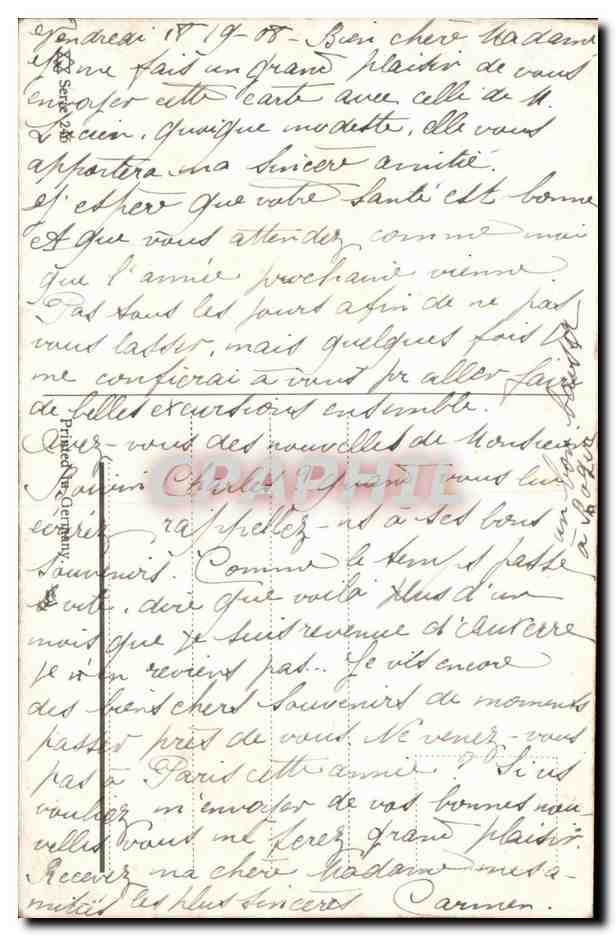 Vendredi 18 19-08 - Bien chère Madame
Je me fais un grand plaisir de vous
envoyer cette carte avec celle de M.
Lucien, quoique modeste, elle vous
apportera ma sincère amitié.
J'espère que votre santé est bonne
et que vous attendez comme moi
que l'année prochaine vienne
Pas tous les jours afin de ne pas
vous lasser, mais quelques fois
me confierai à vous pr aller faire
de belles excursions ensemble.
Avez-vous des nouvelles de Monsieur
Charles? quand vous lui
écrirez rappellez-ns à ses bons
souvenirs. Comme le temps passe
vite, dire que voilà plus d'un
mois que je suis revenue d'Auxerre
je n'en reviens pas... Je vis encore
des biens chers souvenirs de moments
passer près de vous. Ne venez-vous
pas à Paris cette année? Si vs
vouliez m'envoyer de vos bonnes nou-
velles vous me ferez grand plaisir.
Recevez ma chère Madame mes a-
mitiés les plus sincères Carmen.
un bon baiser
à Roger
Serie 246
Printed in Germany.
CPAPHIL